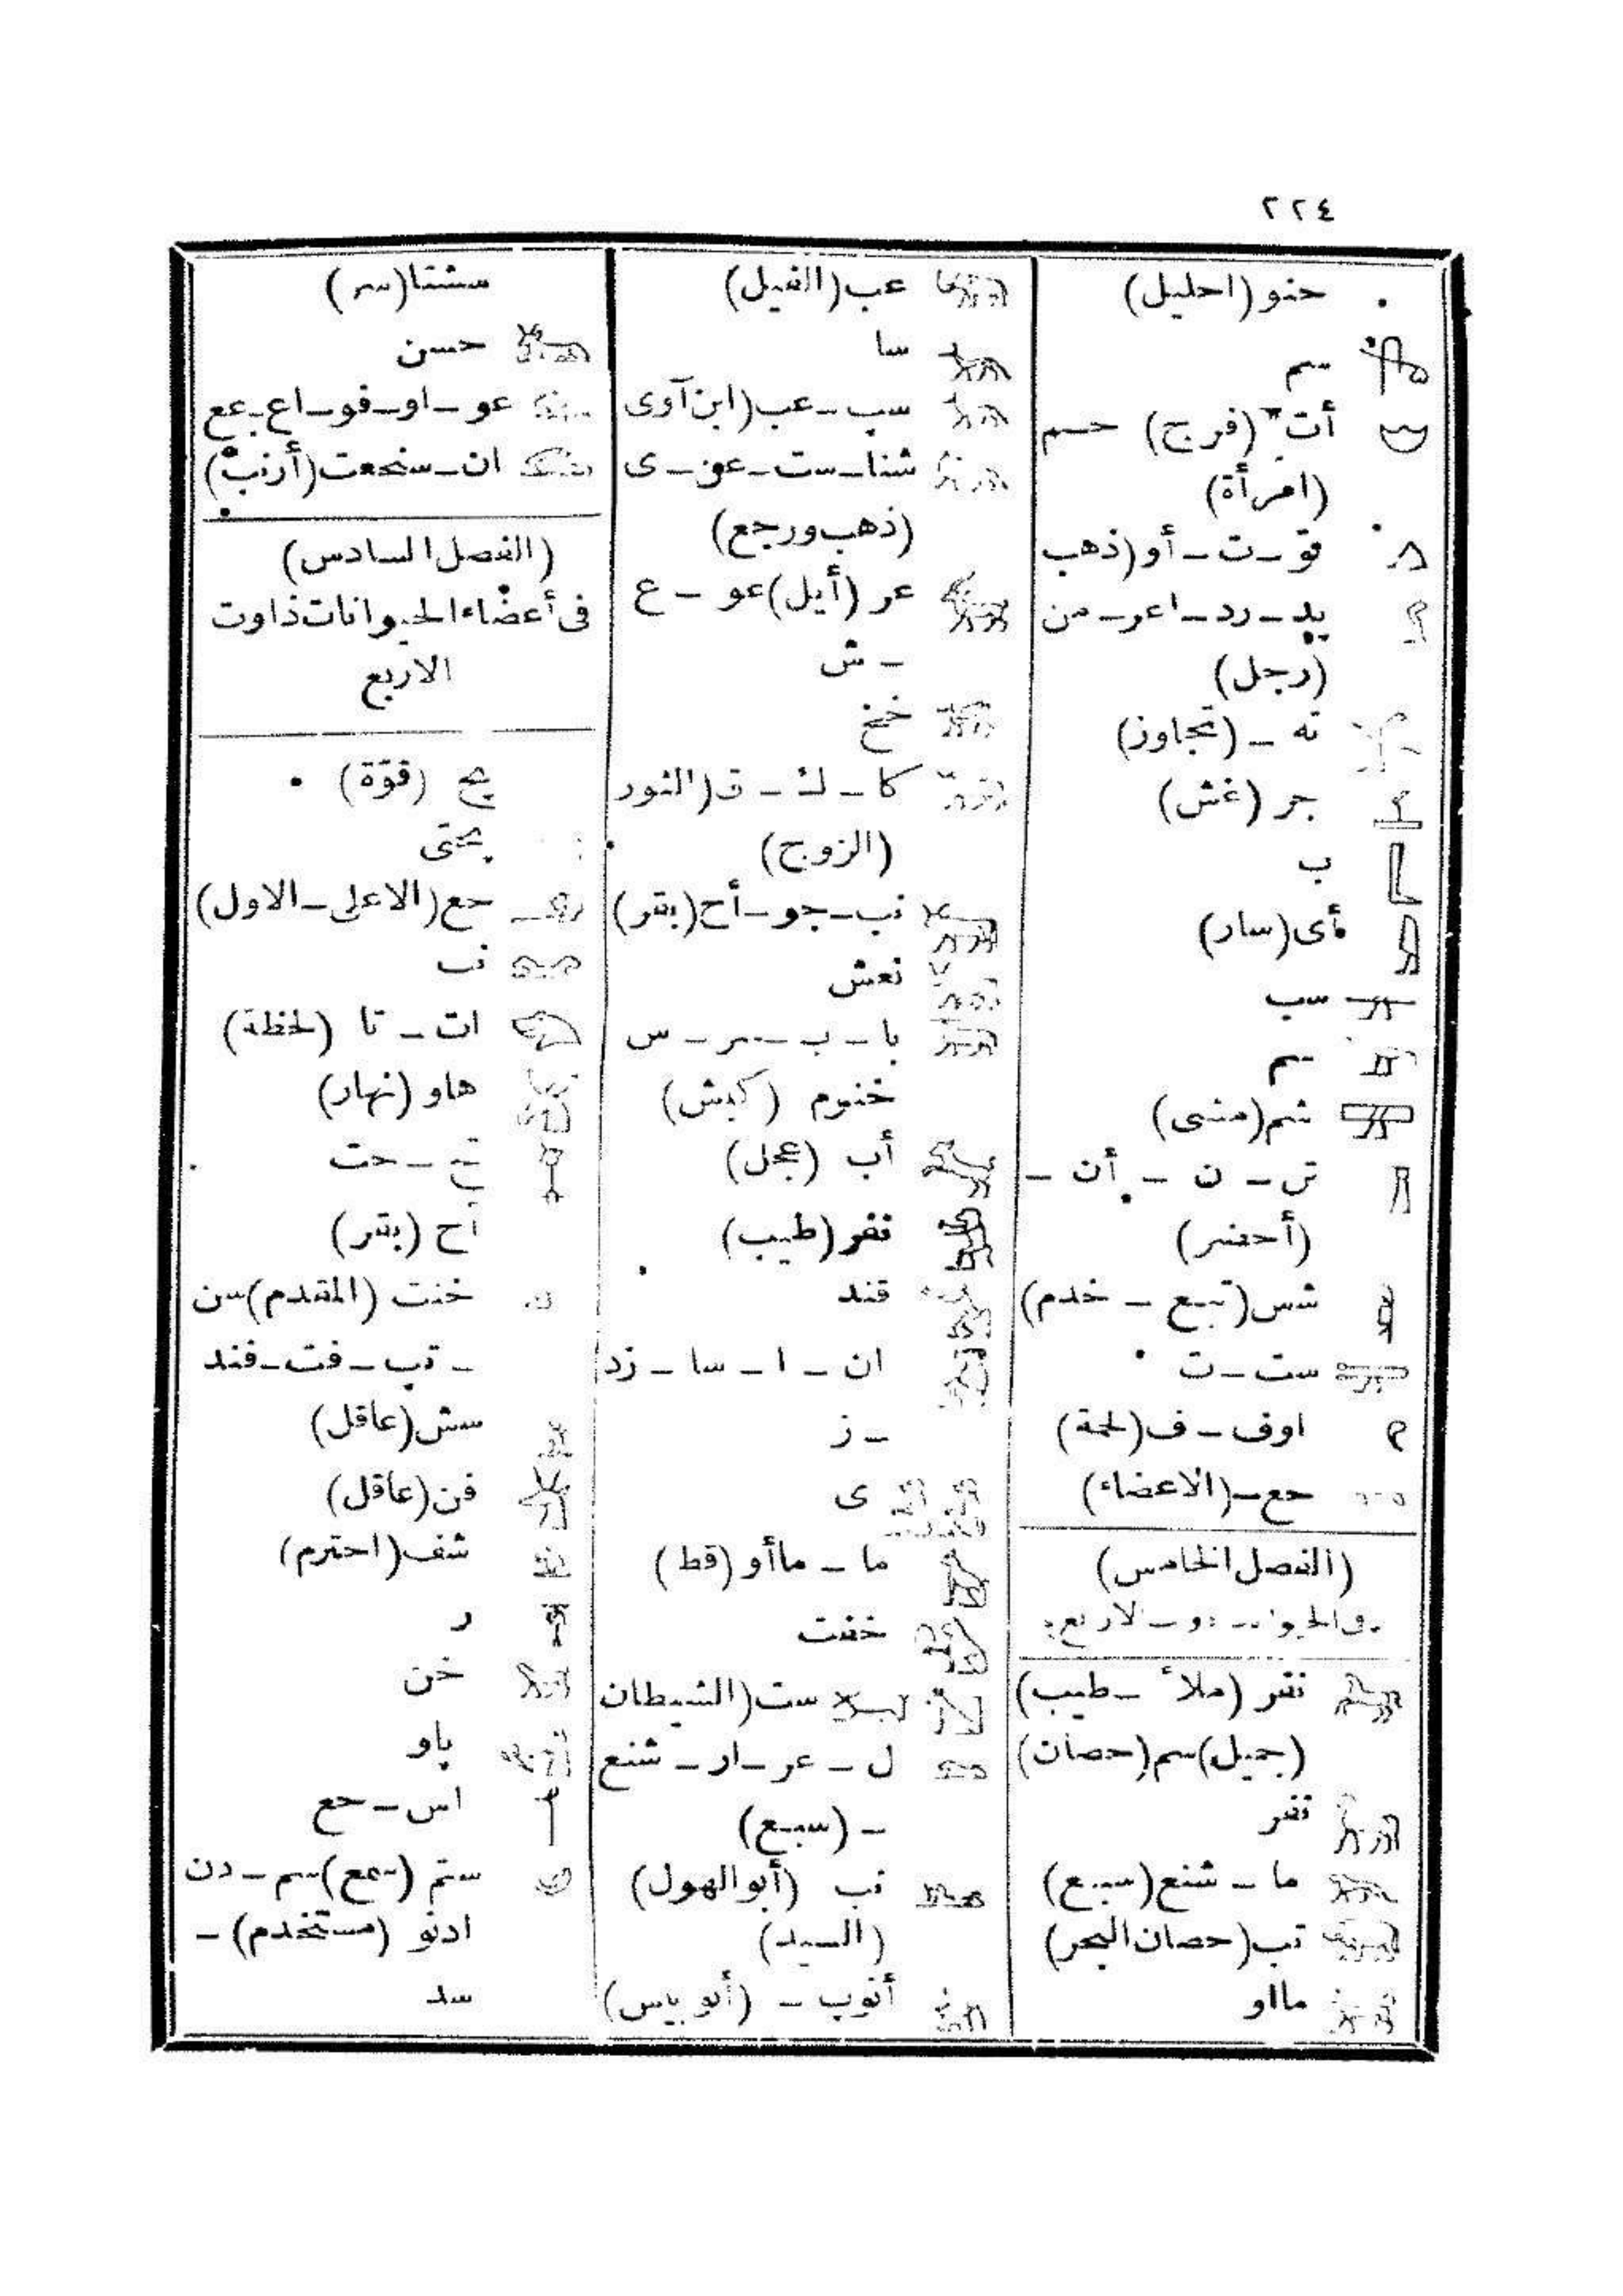 ٢٢٤
حنو (احليل)
سم
أت (فرج) حم
(امرأة)
قو - ت - أو (ذهب
يد - رد - اعر - من
(رجل)
ته - (تجاوز)
جر (غش)
ب
أى (سار)
سب
سم
شم (مشى)
تى - ن - أن -
(أحضر)
شس (تبع - خدم)
ست - ت
اوف - ف (لحمة)
حع - (الاعضاء)
(الفصل الخامس)
نفر (ملأ - طيب)
(جميل) سم (حصان)
نفر
ما - شنع (سبع)
تب (حصان البحر)
مااو
عب (الفيل)
سا
سب - عب (ابن آوى
شنا - ست - عو - ى
(ذهب ورجع)
عر (أيل) عو - ع
- ش
خخ
كا - ك - ق (الثور
(الزوج)
نب - جو - أح (بقر)
نعش
با - ب - سر - س
خنوم (كبش)
أب (عجل)
نفر (طيب)
قند
ان - ا - سا - زد
- ز
ى
ما - مأأو (قط)
خفت
ست (الشيطان
ل - عر - ار - شنع
- (سبع)
نب (أبو الهول)
(السيد)
أنوب - (أنو بيس)
سشتا (سر)
حسن
عو - او - فو - اع - عع
ان - سنحعت (أرنب)
(الفصل السادس)
فى أعضاء الحيوانات ذاوت
الاربع
پح (قوّة)
پحتى
حع (الاعلى - الاول)
نب
ات - تا (لحظة)
هاو (نهار)
- حت
أح (بقر)
خنت (المقدم) سن
- تپ - فت - فند
سش (عاقل)
فن (عاقل)
شف (احترم)
ر
خن
پاو
اس - حع
ستم (سمع) سم - دن
ادنو (مستخدم) -
سد